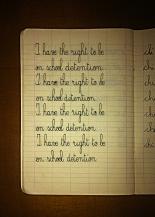 I have the right to be
on school detention.
I have the right to be
on school detention.
I have the right to be
on school detention.
I have the right to be
on school detention.